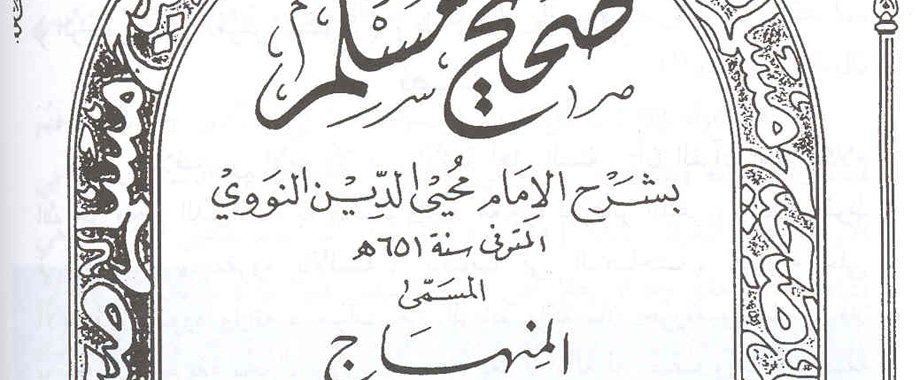 صحيح مسلم
بشرح الإمام محيي الدين النووي
المتوفى سنة ٦٥١ه
المسمى
المنهاج